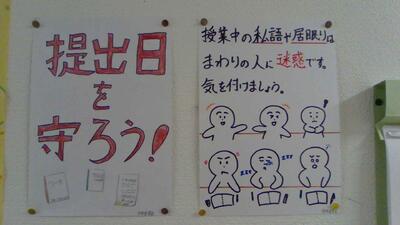 提出日
を
守ろう!
授業中の私語や居眠りは
まわりの人に迷惑です。
気を付けましょう。
zzz
zzz